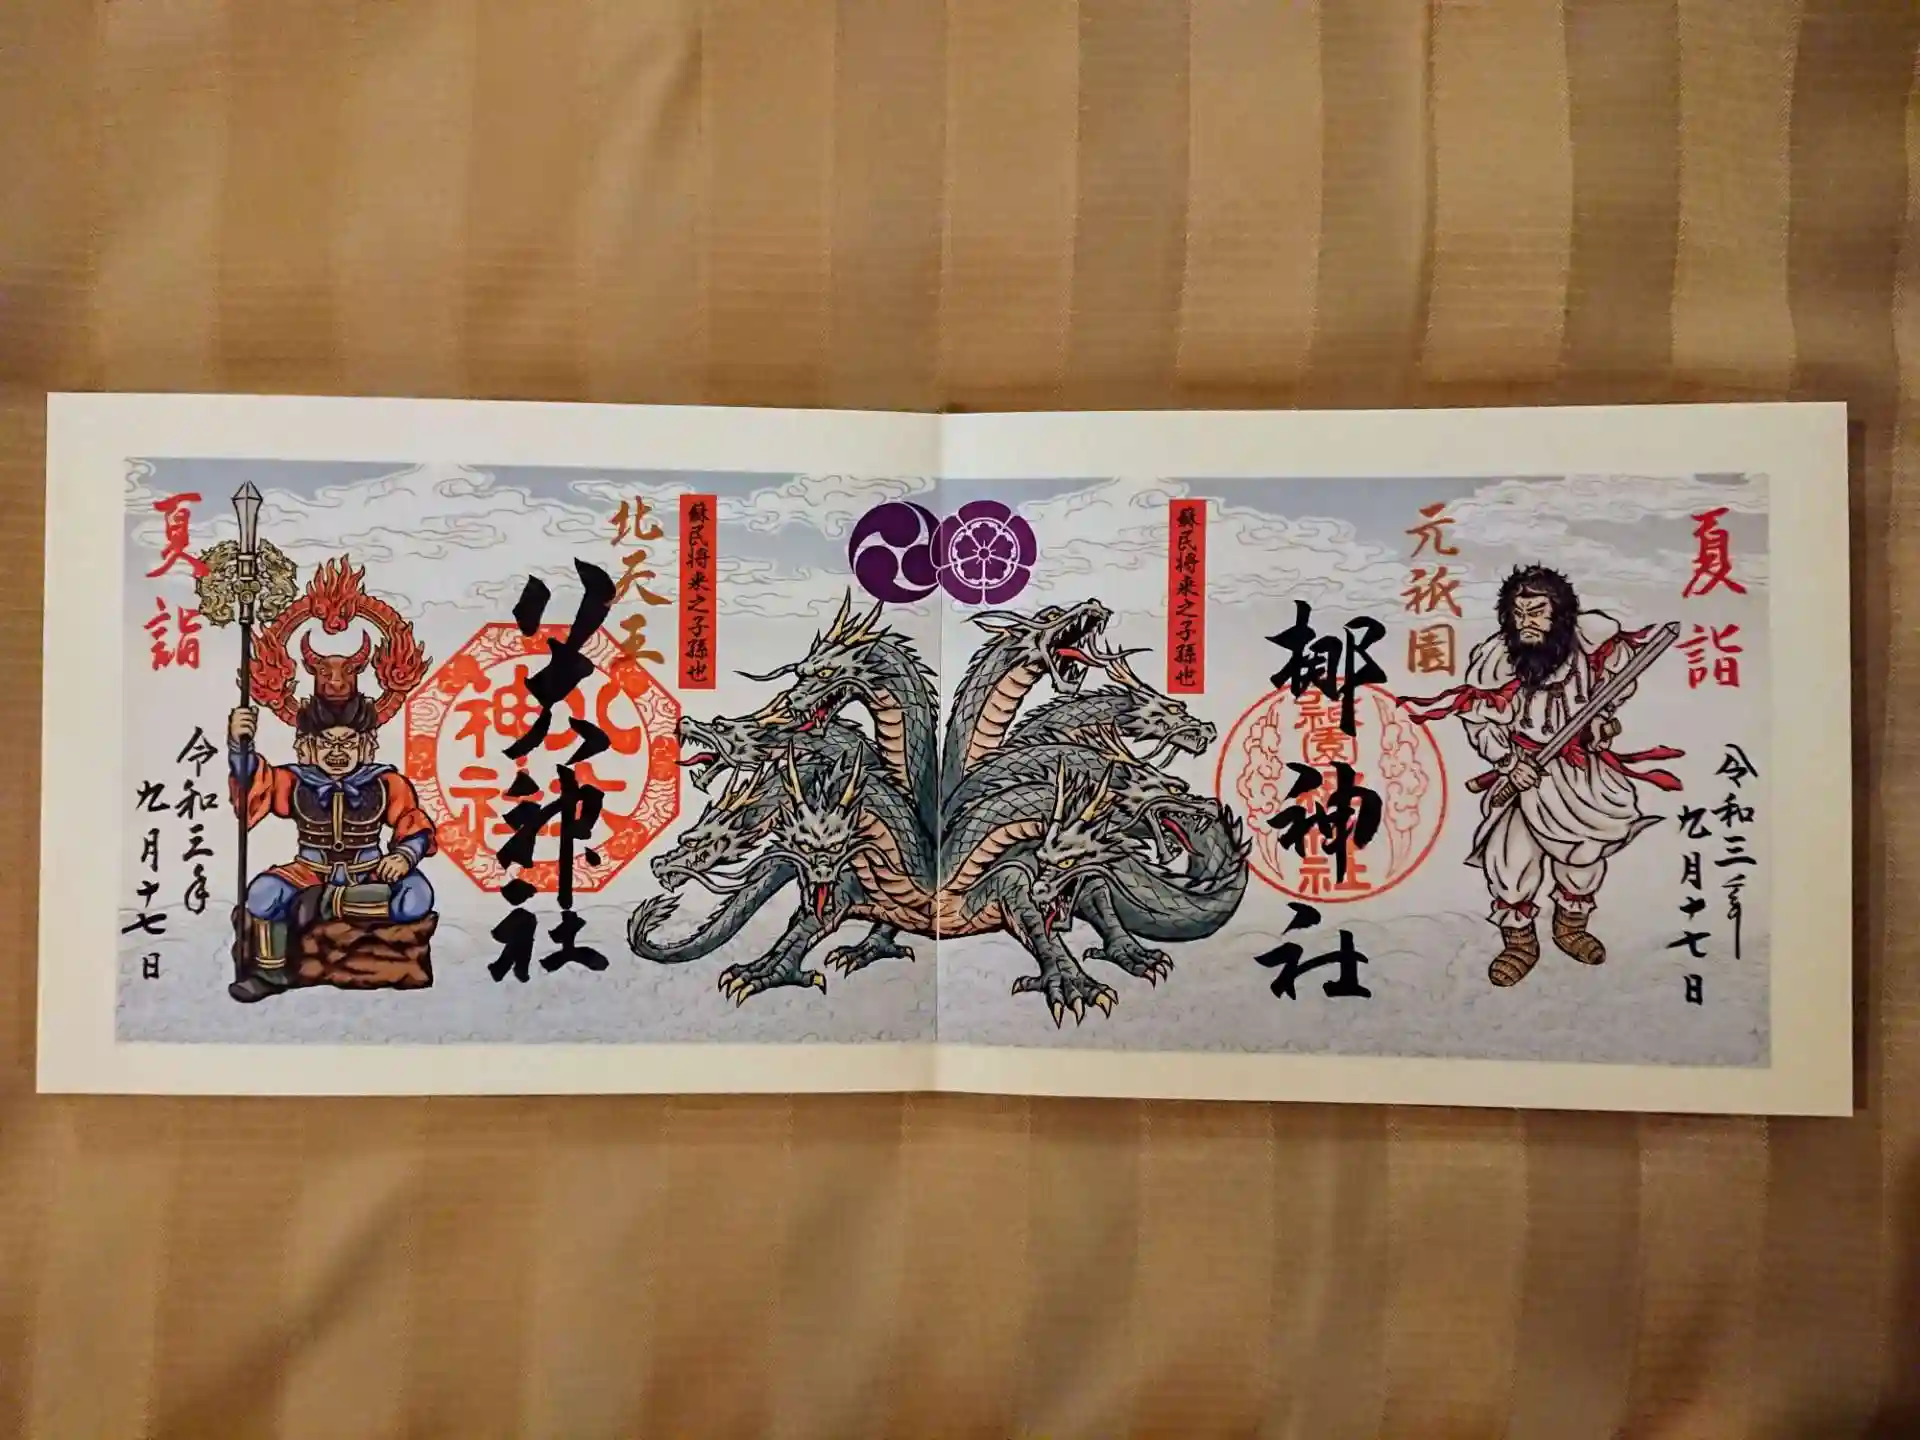 夏詣
令和三年
九月十七日
元祇園
梛神社
蘇民将来之子孫也
蘇民将来之子孫也
北天王
八大神社
八大
神社
夏詣
令和三年
九月十七日